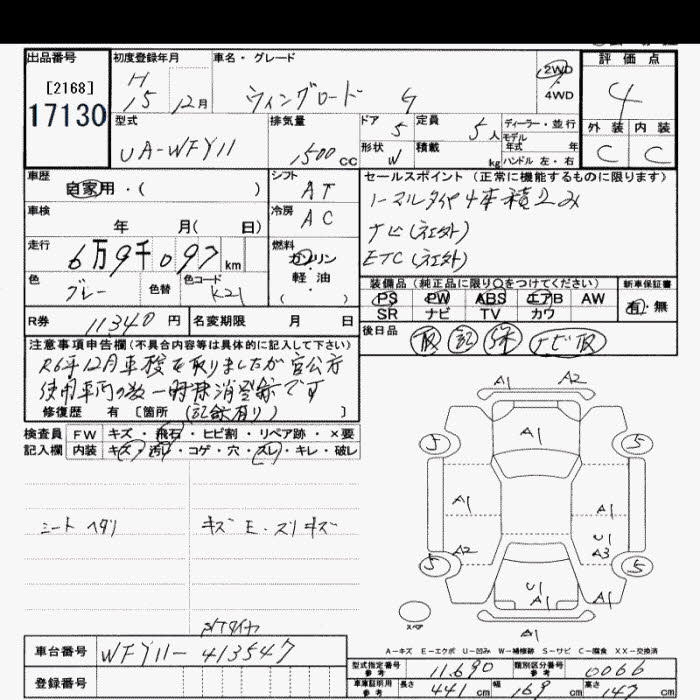 出品番号 初度登録年月 車名・グレード 2WD 評価点
[2168] H 4WD 4
17130 15 12月 ウィングロード G
型式 排気量 ドア 5 定員 5人 ディーラー・並行 外装 内装
UA-WFY11 1500cc 形状 W 積載 kg モデル年式 年 C C
ハンドル 左・右
車歴 シフト セールスポイント（正常に機能するものに限ります）
自家用・( ) AT ノーマルタイヤ4本積込み
車検 年 月( 日) 冷房 AC ナビ(社外)
走行 6万9千097km 燃料 ガソリン ETC(社外)
軽・油
色 グレー 色替 色コード K21 ( )
装備品（純正品に限り〇をつけてください） 新車保証書
PS PW ABS エアB AW 有・無
SR ナビ TV カワ
R券 11340円 名変期限 月 日 後日品 取 記 保 ナビ取
注意事項申告欄(不具合内容等は具体的に記入して下さい)
R6年12月車検を取りましたが官公庁
使用車両の為一時抹消登録です
修復歴 有 [箇所 (記録有り) ]
検査員 FW キズ・飛石・ヒビ割・リペア跡・×要
記入欄 内装 キズ・汚レ・コゲ・穴・スレ・キレ・破レ
シートヘタリ キズ E・スリキズ
A1 A2
A1
5 5
A1 A1
A2 U1
A3
5 5
U1
A1 A1
スペア A1
A-キズ E-エクボ U-凹み W-補修跡 S-サビ C-腐食 XX-交換済
車台番号 WFY11-413547
登録番号
型式指定番号 参考 11690 類別区分番号 参考 0066
車庫証明用 参考 長さ 441cm 幅 169cm 高さ 147cm